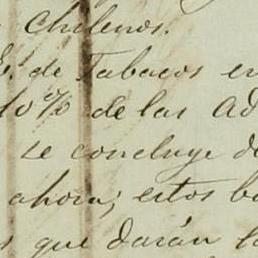 Chilenos.
E. de Tabacos en
10% de las Ad
se concluye de
ahora; estos bo
s que darán la